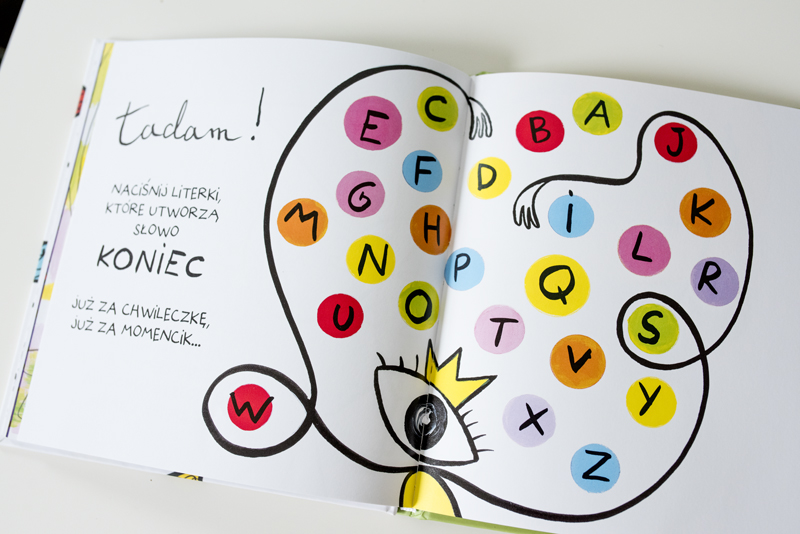 tadam!
NACIŚNIJ LITERKI,
KTÓRE UTWORZĄ
SŁOWO
KONIEC
JUŻ ZA CHWILECZKĘ,
JUŻ ZA MOMENCIK...
E C
F
G
M H
N
U O
W
B A J
D
i K
L
P R
Q
T S
V
Y
X
Z